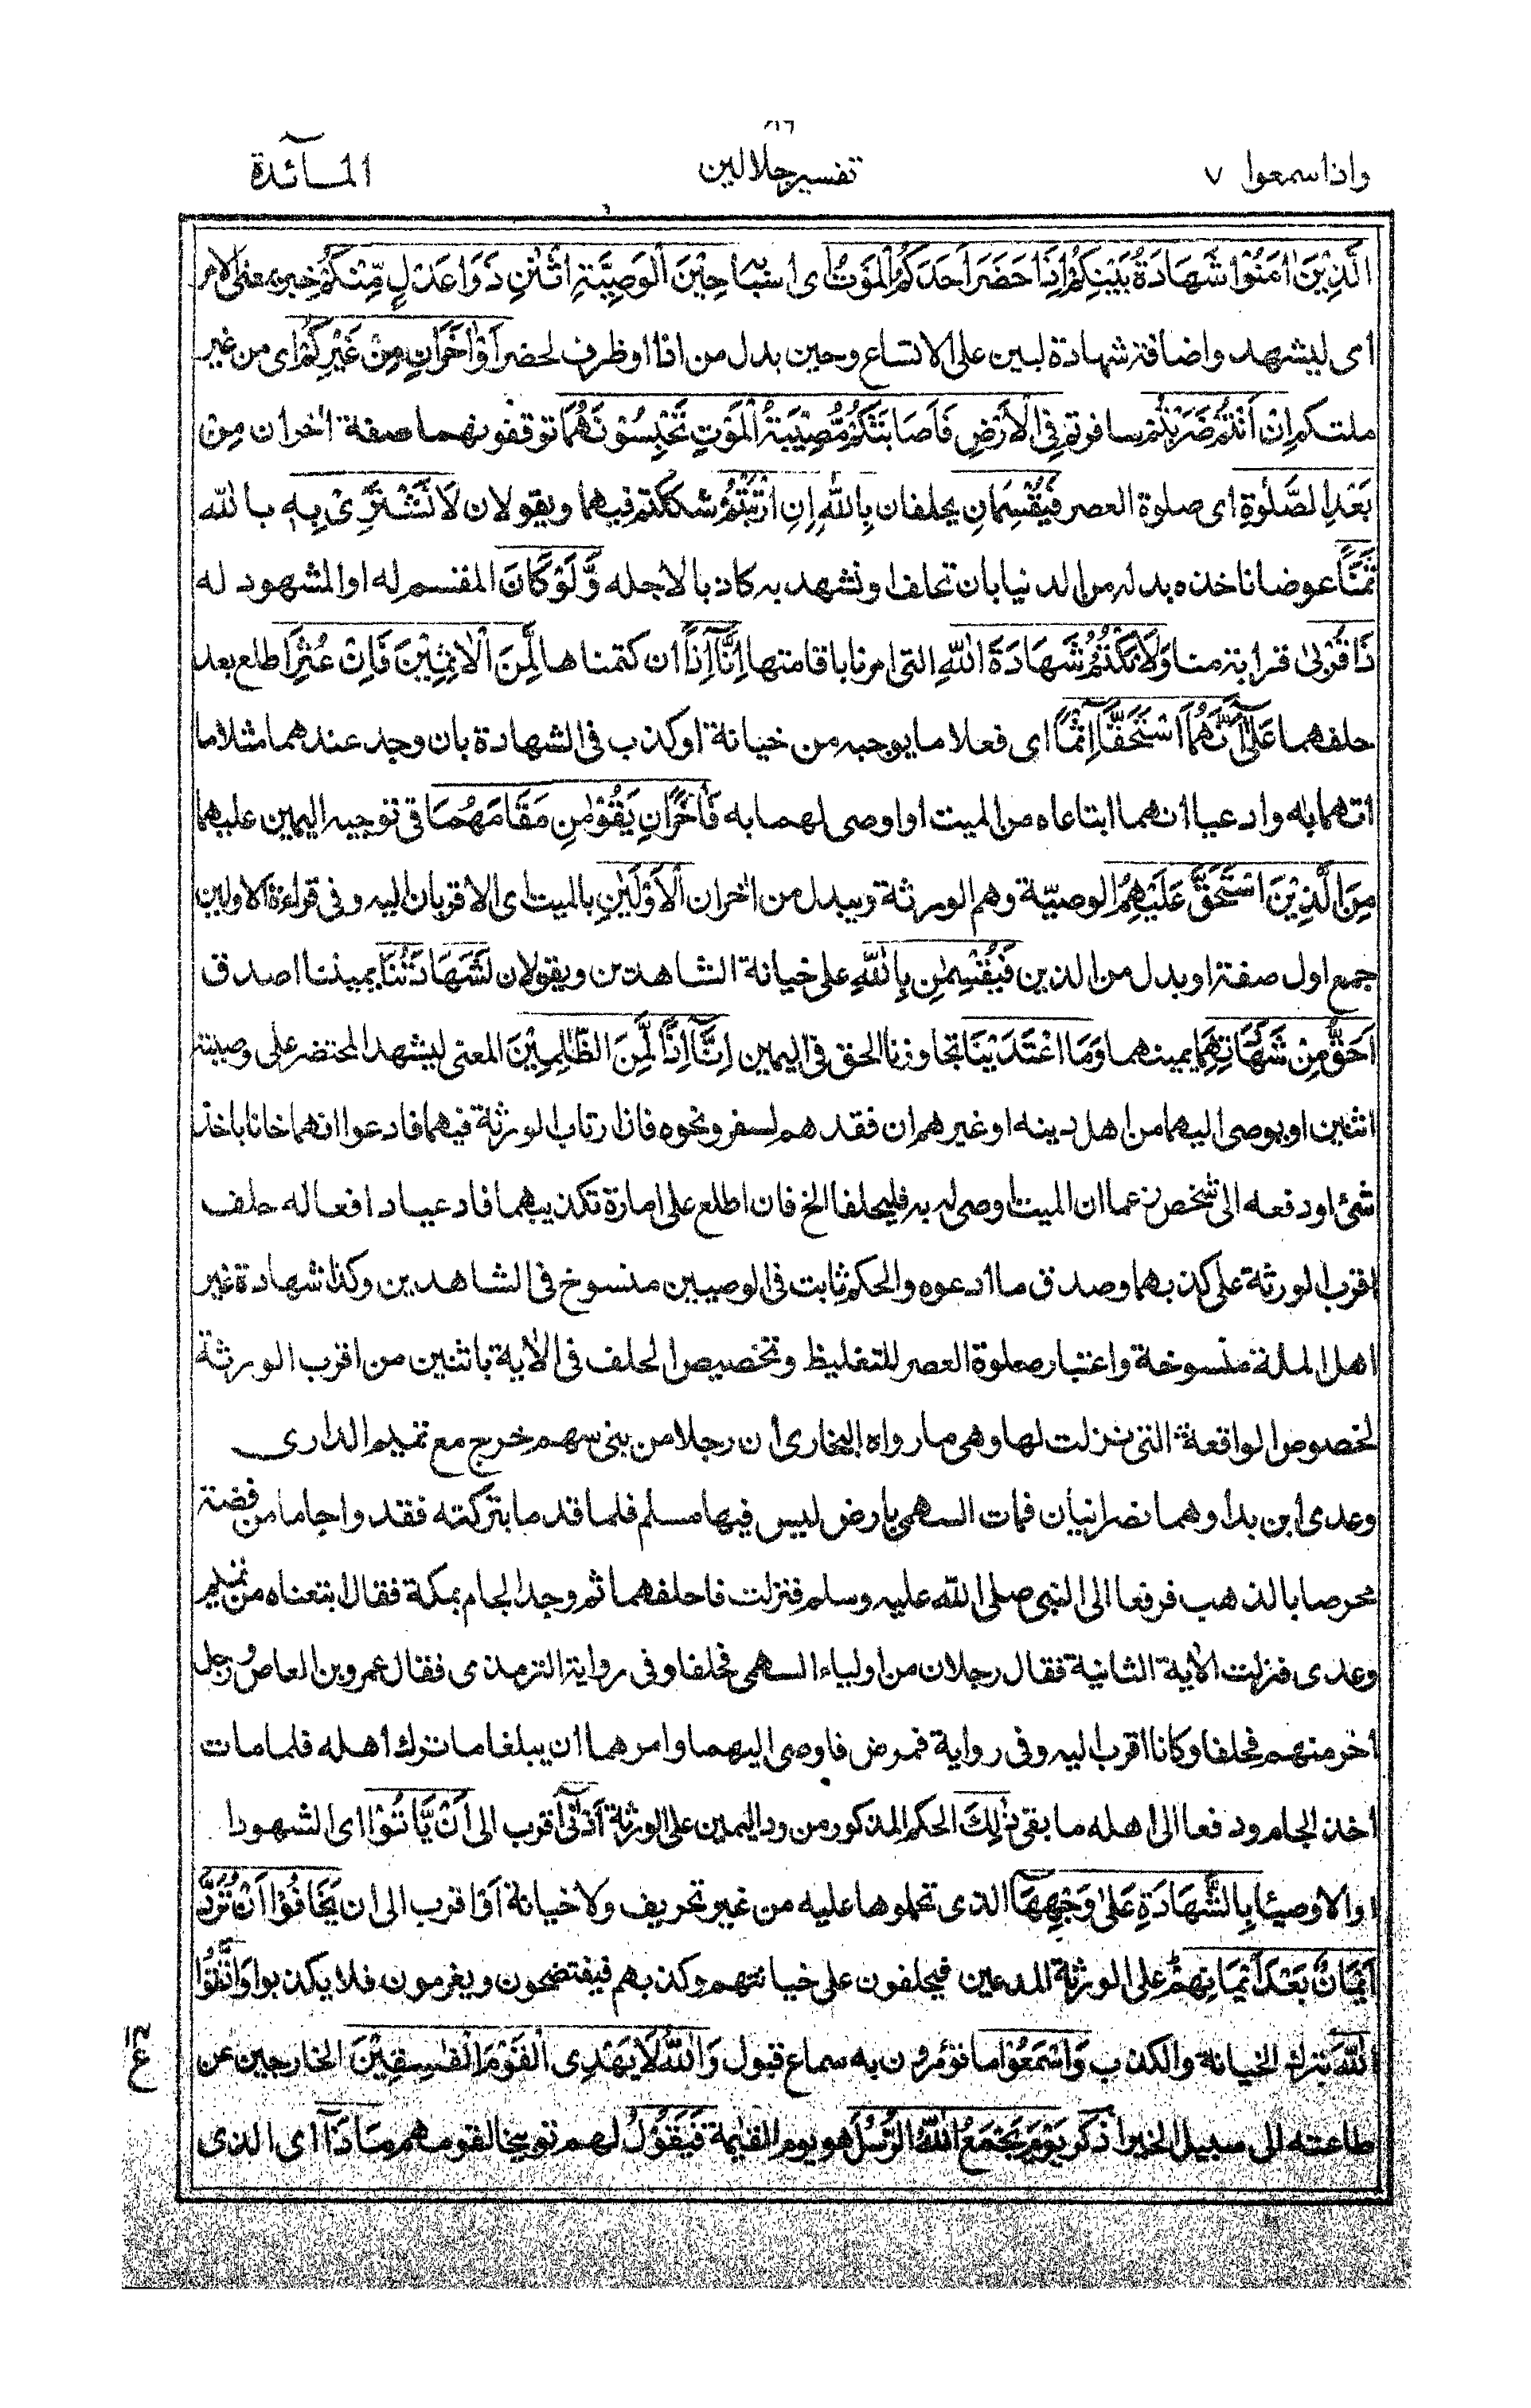 واذاسمعوا ٧
تفسير جلالين
المآئدة
الَّذِيْنَ اٰمَنُوْا شَهَادَةُ بَيْنِكُمْ اِذَا حَضَرَ اَحَدَكُمُ الْمَوْتُ اى اسبابه حِيْنَ الْوَصِيَّةِ اثْنٰنِ ذَوَا عَدْلٍ مِّنْكُمْ خبر بمعنى الامر
اى ليشهد واضافة شهادة لبين على الاتساع وحين بدل من اذا او ظرف لحضر اَوْ اٰخَرَانِ مِنْ غَيْرِكُمْ اى من غير
ملتكم اِنْ اَنْتُمْ ضَرَبْتُمْ سافرتم فِى الْاَرْضِ فَاَصَابَتْكُمْ مُّصِيْبَةُ الْمَوْتِ تَحْبِسُوْنَهُمَا توقفونهما صفة اٰخران مِنْ
بَعْدِ الصَّلٰوةِ اى صلوة العصر فَيُقْسِمَانِ يحلفان بِاللّٰهِ اِنِ ارْتَبْتُمْ شككتم فيهما ويقولان لَا نَشْتَرِىْ بِهٖ بالله
ثَمَنًا عوضا ناخذه بدله من الدنيا بان نحلف او نشهد به كاذبا لاجله وَّلَوْ كَانَ المقسم له او المشهود له
ذَا قُرْبٰى قرابة منا وَلَا نَكْتُمُ شَهَادَةَ اللّٰهِ التى امرنا باقامتها اِنَّآ اِذًا ان كتمناها لَّمِنَ الْاٰثِمِيْنَ فَاِنْ عُثِرَ اطلع بعد
حلفهما عَلٰٓى اَنَّهُمَا اسْتَحَقَّآ اِثْمًا اى فعلا ما يوجبه من خيانة او كذب فى الشهادة بان وجد عندهما مثلا ما
اتهما به وادعيا انهما ابتاعاه من الميت او اوصى لهما به فَاٰخَرَانِ يَقُوْمٰنِ مَقَامَهُمَا فى توجيه اليمين عليهما
مِنَ الَّذِيْنَ اسْتَحَقَّ عَلَيْهِمُ الوصيّة وهم الورثة ويبدل من اٰخران الْاَوْلَيٰنِ بالميت اى الاقربان اليه وفى قراءة الاولين
جمع اول صفة او بدل من الذين فَيُقْسِمٰنِ بِاللّٰهِ على خيانة الشاهدين ويقولان لَشَهَادَتُنَا يميننا اصدق
اَحَقُّ مِنْ شَهَادَتِهِمَا يمينهما وَمَا اعْتَدَيْنَا تجاوزنا الحق فى اليمين اِنَّآ اِذًا لَّمِنَ الظّٰلِمِيْنَ المعنى ليشهد المحتضر على وصيته
اثنين او يوصى اليهما من اهل دينه او غيرهم ان فقدهم لسفر ونحوه فان ارتاب الورثة فيهما فادعوا انهما خانا باخذ
شئ او دفعه الى شخص زعما ان الميت اوصى له به فليحلفا الخ فان اطلع على امارة تكذيبهما فادعيا دافعا له حلف
اقرب الورثة على كذبهما وصدق ما ادعوه والحكم ثابت فى الوصيين منسوخ فى الشاهدين وكذا شهادة غير
اهل الملة منسوخة واعتبار صلوة العصر للتغليظ وتخصيص الحلف فى الاٰية باثنين من اقرب الورثة
لخصوص الواقعة التى نزلت لها وهى ما رواه البخارى ان رجلا من بنى سهم خرج مع تميم الدارى
وعدى ابن بداء وهما نصرانيان فمات السهمى بارض ليس فيها مسلم فلما قدما بتركته فقدوا جاما من فضة
مخوصا بالذهب فرفعا الى النبى صلى الله عليه وسلم فنزلت فاحلفهما ثم وجد الجام بمكة فقال ابتعناه من تميم
وعدى فنزلت الاٰية الثانية فقال رجلان من اولياء السهمى فحلفا وفى رواية الترمذى فقال عمرو بن العاص ورجل
اٰخر منهم فحلفا وكانا اقرب اليه وفى رواية فمرض فاوصى اليهما وامرهما ان يبلغا ما ترك اهله فلما مات
اخذ الجام ودفعا الى اهله ما بقى ذٰلِكَ الحكم المذكور من رد اليمين على الورثة اَدْنٰٓى اقرب الى اَنْ يَّاْتُوْا اى الشهود ا
او الاوصيا بِالشَّهَادَةِ عَلٰى وَجْهِهَآ الذى تحملوها عليه من غير تحريف ولا خيانة اَوْ اقرب الى ان يَخَافُوْٓا اَنْ تُرَدَّ
اَيْمَانٌ بَعْدَ اَيْمَانِهِمْ على الورثة المدعين فيحلفون على خيانتهم وكذبهم فيفتضحون ويغرمون فلا يكذبوا وَاتَّقُوا
اللّٰهَ بترك الخيانة والكذب وَاسْمَعُوْا ما تؤمرون به سماع قبول وَاللّٰهُ لَا يَهْدِى الْقَوْمَ الْفٰسِقِيْنَ الخارجين عن
ع
طاعته الى سبيل الخير اذكر يَوْمَ يَجْمَعُ اللّٰهُ الرُّسُلَ هو يوم القيٰمة فَيَقُوْلُ لهم توبيخا لقومهم مَاذَآ اى الذى